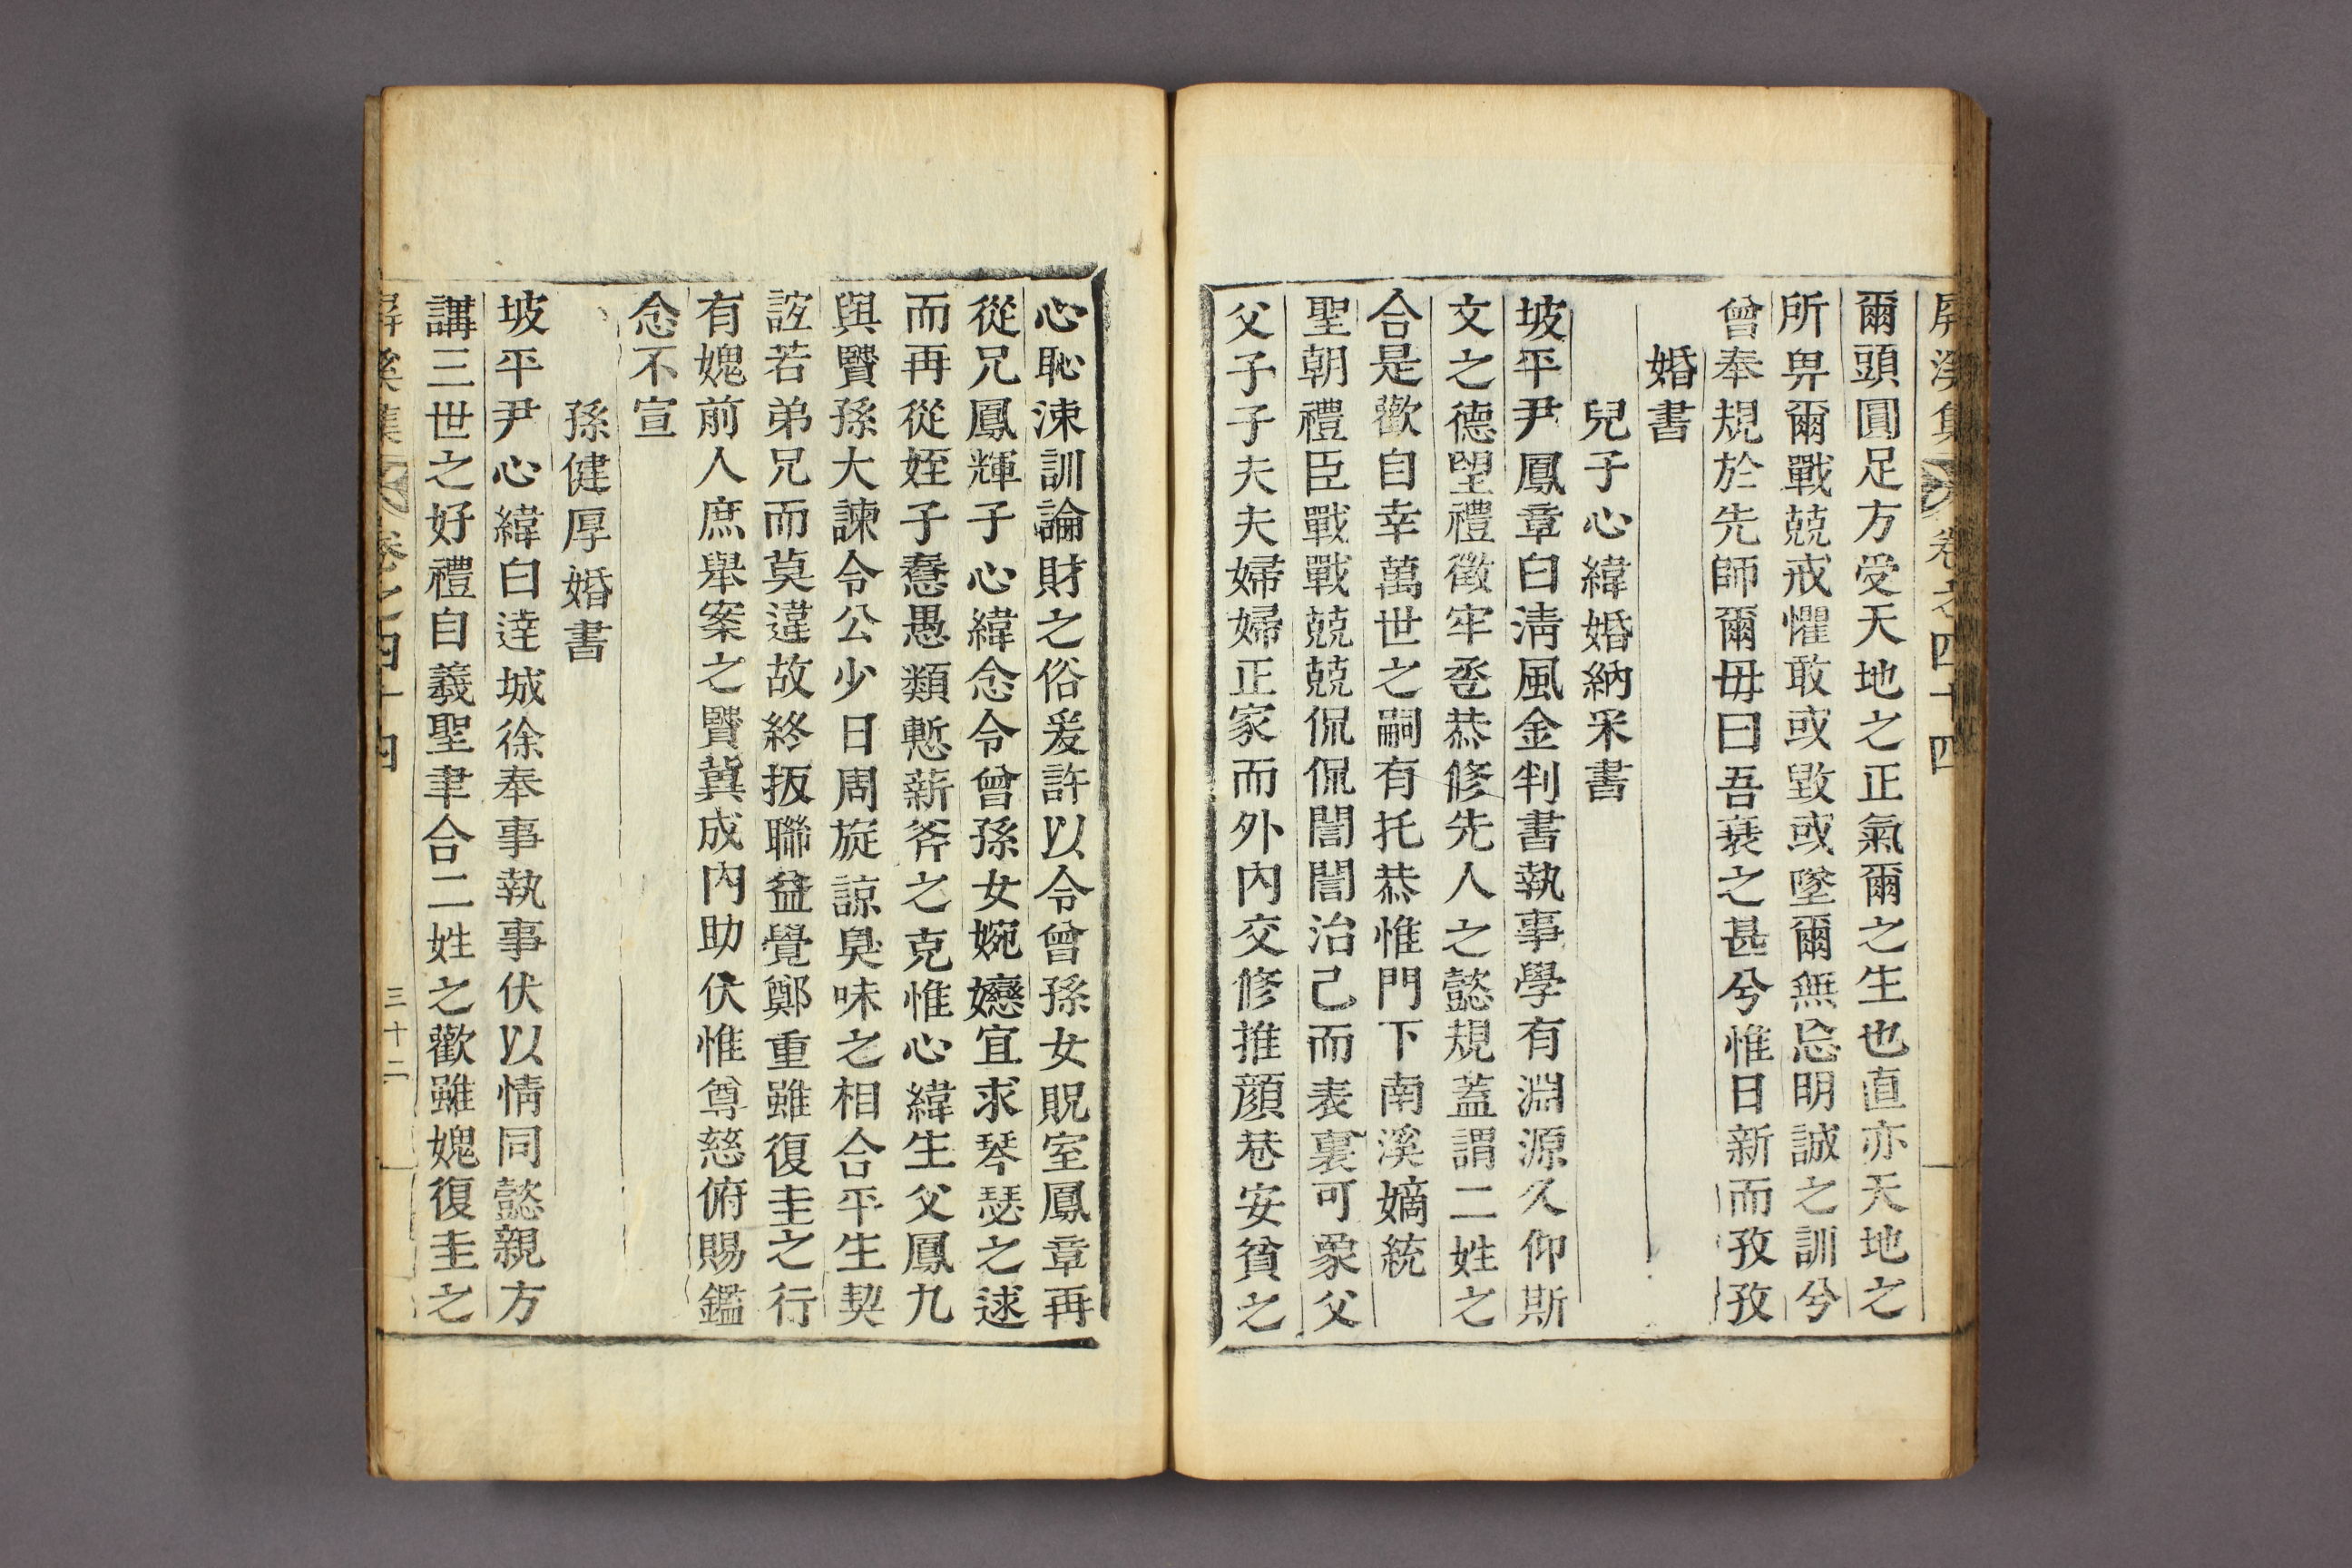 屛溪集 卷之四十四
爾頭圓足方受天地之正氣爾之生也直亦天地之
所畀爾戰兢戒懼敢或毁或墜爾無忘明誠之訓兮
曾奉規於先師爾毋曰吾衰之甚兮惟日新而孜孜
婚書
兒子心緯婚納采書
坡平尹鳳章白淸風金判書執事學有淵源久仰斯
文之德望禮徵牢巹恭修先人之懿規蓋謂二姓之
合是歡自幸萬世之嗣有托恭惟門下南溪嫡統
聖朝禮臣戰戰兢兢侃侃誾誾治己而表裏可象父
父子子夫夫婦婦正家而外內交修推顔巷安貧之
心恥涑訓論財之俗爰許以令曾孫女貺室鳳章再
從兄鳳輝子心緯念令曾孫女婉嬺宜求琴瑟之逑
而再從姪子惷愚類慙薪斧之克惟心緯生父鳳九
與賢孫大諫令公少日周旋諒臭味之相合平生契
誼若弟兄而莫違故終扳聯益覺鄭重雖復圭之行
有媿前人庶舉案之賢冀成內助伏惟尊慈俯賜鑑
念不宣
孫健厚婚書
坡平尹心緯白達城徐奉事執事伏以情同懿親方
講三世之好禮自羲聖聿合二姓之歡雖媿復圭之
屛溪集 卷之四十四 三十二